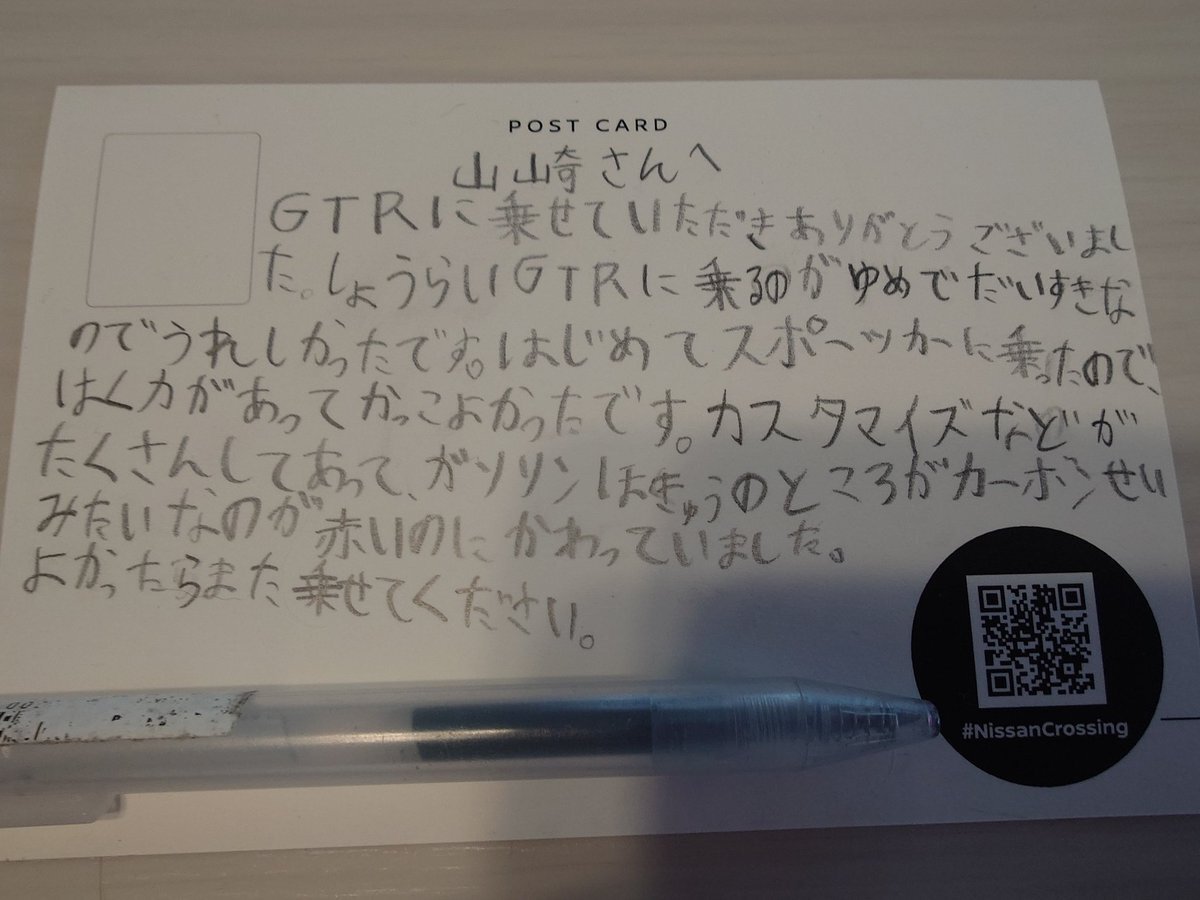 POST CARD
山崎さんへ
GTRに乗せていただきありがとうございまし
た。しょうらいGTRに乗るのがゆめでだいすきな
のでうれしかったです。はじめてスポーツカーに乗ったので、
はく力があってかっこよかったです。カスタマイズなどが
たくさんしてあって、ガソリンほきゅうのところがカーボンせい
みたいなのが赤いのにかわっていました。
よかったらまた乗せてください。
#NissanCrossing